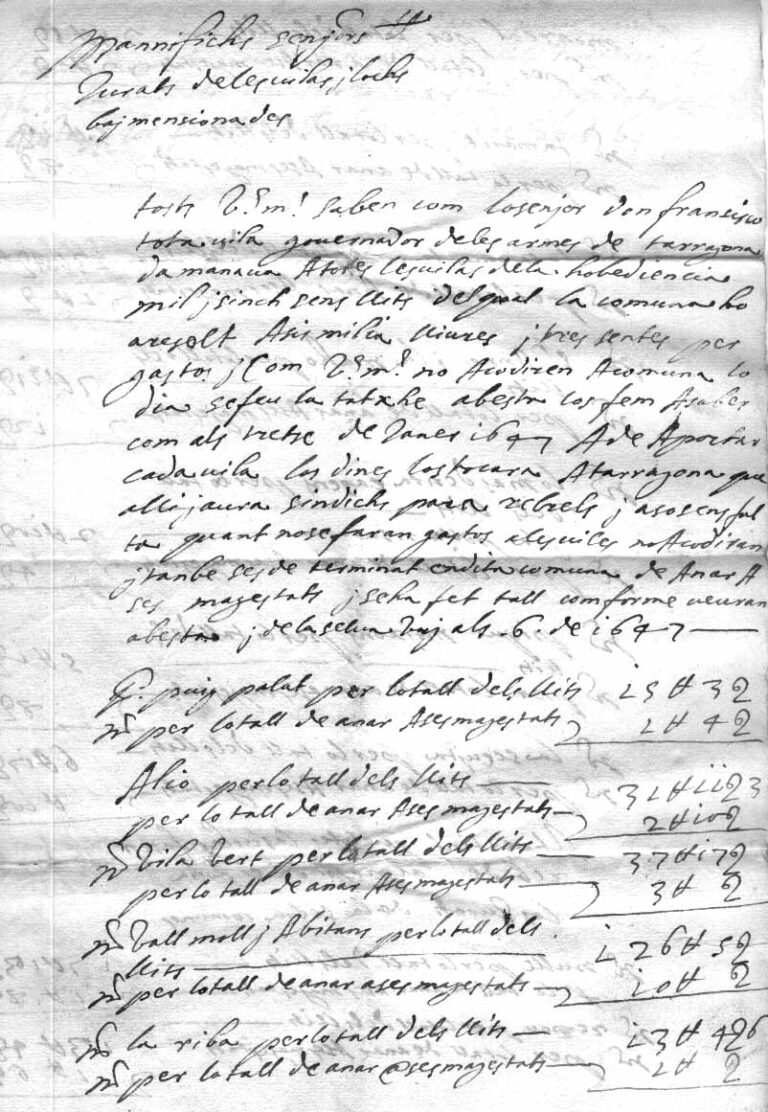 Mannifichs senjors
Jurats de les vilas j lochs
baj mensionades
tots V.s m.s saben com lo senjor don fransisco
totavila governador de les armes de tarragona
damanava A totes les vilas de la hobediencia
mil j sinch sens llits del qual la comuna ho
aresolt Asis milia lliures j tres sentes per
gastos j Com V.s m.s no Acudiren A comuna lo
dia se feu la tatxe abestra los fem A saber
com als tretse de Janer 1647 A de Aportar
cada vila los dines los tocara A tarragona que
alli j aura sindichs para rebrels j aso sens fal
ta quant no se faran gastos a les viles no Acudiran
j tanbe ses determinat en dita comuna de Anar A
ses magestats j se ha fet tall comforme veuran
abestra j de la selva vuj als .6. de 1647
P.o puig palat per lo tall dels llits 15 ₶ 3 ꝯ
per lo tall de anar A ses magestats 1 ₶ 4 ꝯ
Alio per lo tall dels llits 31 ₶ 11 ꝯ 3
per lo tall de anar A ses magestats 2 ₶ 10 ꝯ
Vila Vert per lo tall dels llits 37 ₶ 17 ꝯ
per lo tall de anar A ses magestats 3 ₶ ꝯ
Vall moll j Abitans per lo tall dels
llits 126 ₶ 5 ꝯ
per lo tall de anar a ses magestats 10 ₶ ꝯ
la riba per lo tall dels llits 13 ₶ 4 ꝯ 6
per lo tall de anar a ses magestats 1 ₶ ꝯ